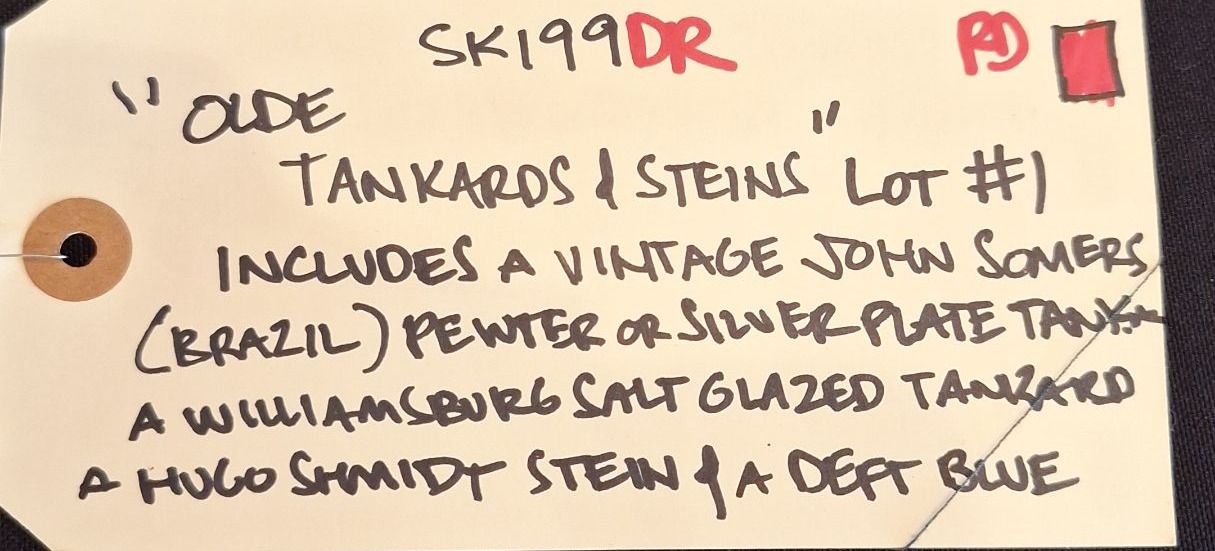 SK199DR RD
"OLDE
TANKARDS & STEINS" LOT #1
INCLUDES A VINTAGE JOHN SOMERS
(BRAZIL) PEWTER OR SILVER PLATE
A WILLIAMSBURG SALT GLAZED TANKARD
A HUGO SHMIDT STEIN & A DEFT BLUE